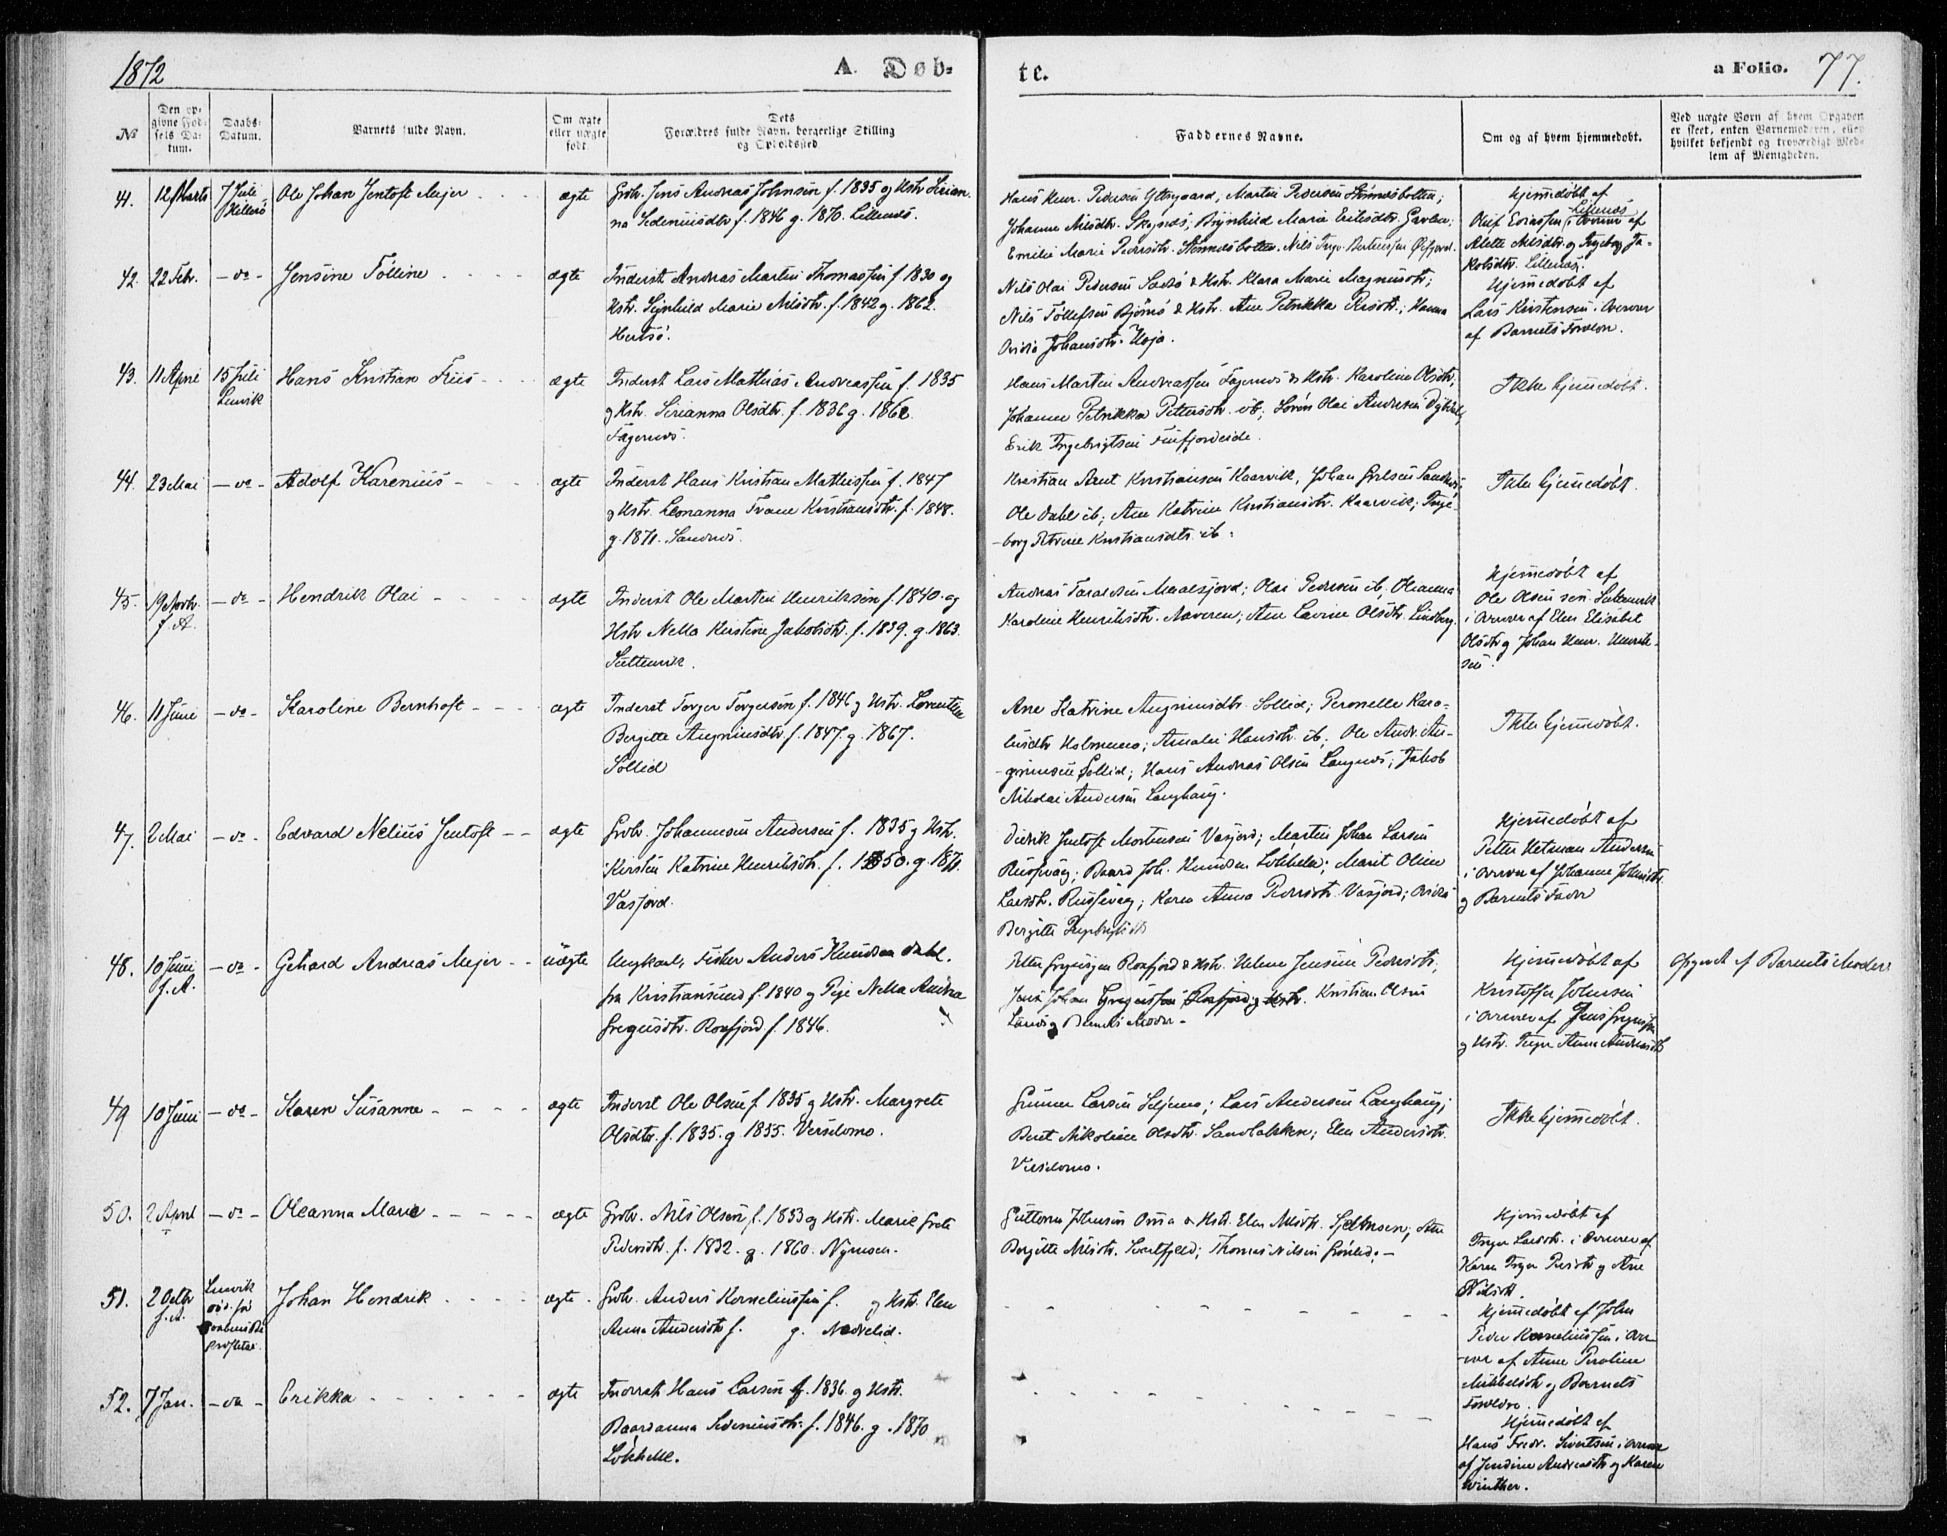 1872
A. Døb-
te.
a Folio. 77.
No
Den op-
givne Fød-
sels Da-
tum.
Daabs-
Datum.
Barnets fulde Navn.
Om ægte
eller uægte
født.
Dets
Forældres fulde Navn, borgerlige Stilling
og Opholdssted
Faddernes Navne.
Om og af hvem hjemmedøbt.
Ved uægte Børn af hvem Opgaven
er skeet, enten Barnemoderen, eller
hvilket bekjendt og troværdigt Med-
lem af Menigheden.
41. 12 Marts 7 Juli
Hillesø
Ole Johan Jentoft Mejer ægte
Grbr. Jens Andreas Johnsen f. 1835 og Hstr Sirian-
na Sedeniusdtr f. 1846 g. 1870. Lillenæs.
Hans Henr. Pedersen Yttregaard, Martin Pedersen Stønnesbotten;
Johanna Nilsdtr. Skognæs; Brynhild Marie Eriksdtr.
Emilie Marie Pedersdtr. Stønnesbotten. Nils Inge
Hjemmedøbt af
Oluf Lillenæs i Overvær af
Alette Nilsdtr. og Ingeborg Ja-
kobsdtr. Lillenæs.
42. 22 Febr. - do - Jensine Tolline ægte
Inderst Andreas Martin Thomassen f 1830 og
Hstr. Signhild Marie Nilsdtr. f. 1842 g. 1862.
Hertsø.
Nils Olai Pedersen & Hstr. Klara Marie Magnusdtr;
Nils Tollefsen Bjørnø & Hstr. Ane Petrikka; Hanna
Ovidia Johansdtr. Uoja.
Hjemmedøbt af
Lars Kristensen i Overvær
af Barnets Foreldre.
43. 11 April 15 Juli
Lenvik
Hans Kristian Friis ægte
Inderst Lars Mathias Andreassen f. 1835
og Hstr. Sirianna Olsdtr. f. 1836 g. 1862
Fagernæs.
Hans Martin Andreassen Fagernæs & Hstr. Karoline Olsdtr,
Johanna Petrikka Pettersdtr. ib; Søren Olai Andersen
Erik Ingebrigtsen Finfjordeide.
Ikke hjemmedøbt.
44. 23 Mai - do - Adolf Karenius ægte
Inderst Hans Kristian Mathissen f. 1847
og Hstr. Leonanna Kristiansdtr. f. 1848.
g. 1871. Sandnæs.
Kristian Arnt Kristiansen Kaarvik, Johan
Ole Dahl ib; Ane Katrine Kristiansdtr. Kaarvik; Inge-
borg Petrine Kristiansdtr. ib.
Ikke hjemmedøbt.
45. 19 Novbr.
f. A.
- do - Hendrik Olai ægte
Inderst Ole Martin Henriksen f. 1840 og
Hstr Nella Kirstine Jakobsdtr. f. 1839. g. 1863.
Sultenvik.
Andreas Taraldsen Maalsjord; Olai Pedersen ib, Oleanna
Karoline Henriksdtr. Naveren; Ane Lavine Olsdtr. Lindberg.
Hjemmedøbt af
Ole Olsen sen. Sultenvik
i Overvær af Elen Elisabet
Olsdtr og Johan Henr. Henrik-
sen.
46. 11 Juni - do - Karoline Bernhoft ægte
Inderst Torger Torgersen f. 1846 og Hstr. Lorentse
Bergitte Angrimsdtr f. 1847. g. 1867.
Sollid
Ane Katrine Angrimsdtr. Sollid; Peronelle Karo-
lusdtr Holmenes; Amalie Hansdtr. ib; Ole Andr. An-
grimsen Sollid; Hans Andreas Olsen Langnæs; Jakob
Nikolai Andersen Langhaug.
Ikke hjemmedøbt.
47. 2 Mai - do - Edvard Nelius Jentoft ægte
Grbr. Johannesen Andersen f. 1835 g Hstr.
Kirsten Katrine Henriksdtr. f. 1850. g 1871.
Vasjord.
Didrik Jentoft Mortensen Vasjord; Martin Johan Larsen
Russevaag; Baard Joh. Knudsen Løkhelle; Marit Oline
Larsdtr. Russevag; Karen Anna Pedersdtr. Vasjord;
Bergitte
Hjemmedøbt af
Petter Herman Andersen
i Overvær af Johanna Johnsdtr.
og Barnets Fader
48. 10 Juni
f. A.
- do - Gehard Andreas Mejer uægte
Ungkarl, Fisker Anders Knudsen Dahl.
fra Kristiansund f. 1840 og Pige Nella Andrea
Gregusdtr. Rossfjord f. 1846.
Petter Gregussen Rossfjord & Hstr. Helene Jensine Pedersdtr,
Jens Johan Gregussen Rossfjord og Hstr. Kristian Olsen
og Barnets Moder -
Hjemmedøbt af
Kristoffer Johnsen
i Overvær af Jens Gregussen
og Hstr. Inger Anna Andreasdtr
Opgivet af Barnets Moder
49 10 Juni - do - Karen Susanne ægte
Inderst Ole Olsen f 1835 g Hstr. Margrete
Olsdtr. f. 1835. g 1855. Versdomo.
Gunner Larsen Seljenes; Lars Andersen Langhaug;
Beret Nikoline Olsdtr. Sandbakken; Elen Andersdtr.
Versdomo.
Ikke hjemmedøbt.
50. 2 April - do - Oleanna Marie ægte
Grbr. Nils Olsen, f. 1833 og Hstr. Marie Grete
Pedersdtr. f. 1832. g. 1860. Nymoen.
Guttorm Johnsen Omma & Hstr. Elen Nilsdtr. ; Ane
Bergitte Nilsdtr. Svartfjeld; Thomas Nilsen Grønlid; -
Hjemmedøbt af
Inger Larsdtr. i Overvær af
Karen Inger og Ane
Nilsdtr.
51. 2 Octbr
f. A.
Lenvik
Johan Hendrik ægte.
Grbr. Anders Korneliussen f. og Hstr. Elen
Anna Andersdtr f. g. Nedrelid.
Hjemmedøbt af John
Peder Korneliussen i Over-
vær af Anne Peroline
Mikkelsdtr og Barnets
Foreldre.
52. 7 Jan. - do - Erikka ægte
Inderst Hans Larsen f. 1836 og Hstr.
Baardanna Sedeniusdtr. f. 1846. g. 1870
Løkhelle.
Hjemmedøbt af
Hans Fredr. Sivertsen i Overvær
af Jendine Andreasdtr og Karen
Winther.